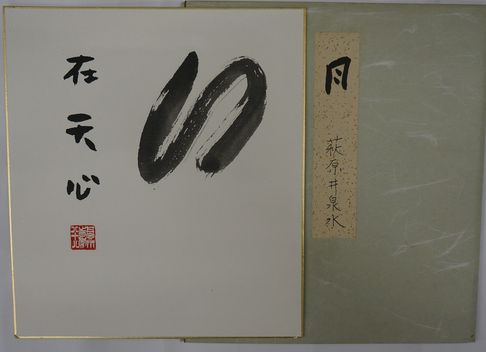 月
在天心
月
萩原井泉水